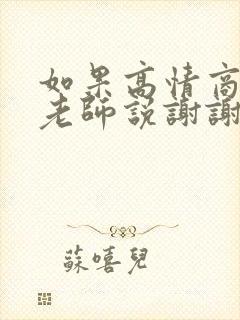 如果高情商
老師說謝謝
蘇嘻兒